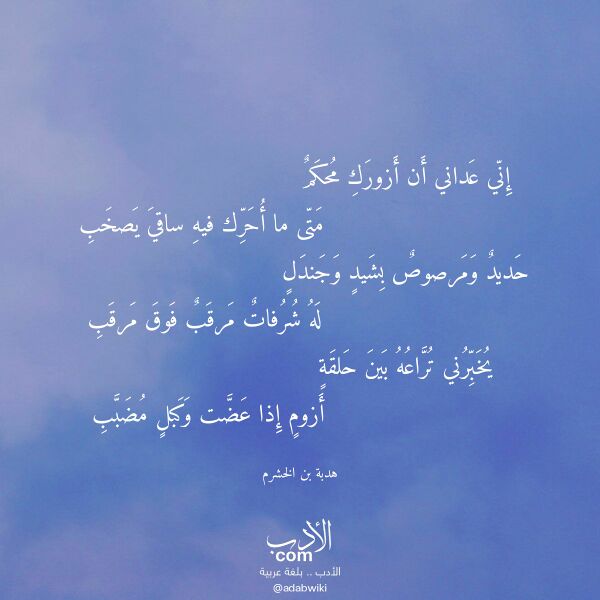 إِنّي عَداني أَن أَزورَكِ مُحكَمٌ
مَتّى ما أُحَرِّك فيهِ ساقيَ يَصخَبِ
حَديدٌ وَمَرصوصٌ بِشَيدٍ وَجَندَلٍ
لَهُ شُرُفاتٌ مَرقَبٌ فَوقَ مَرقَبِ
يُخَبِّرُني تُرَّاعُهُ بَينَ حَلقَةٍ
أَزومٍ إِذا عَضَّت وَكَبلٍ مُضَبَّبِ
هدبة بن الخشرم
الأدب
com
الأدب .. بلغة عربية
@adabwiki